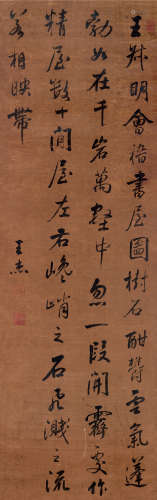 王叔明會稽書屋圖樹石酣鬱雲氣蓬
勃如在千岩萬壑中忽一段開霽更作
精屋數十間屋左右巉峭之石飛濺之流
若相映帶
王杰